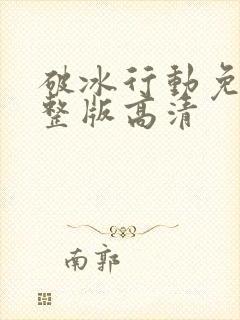 破冰行動免
整版高清
南郭